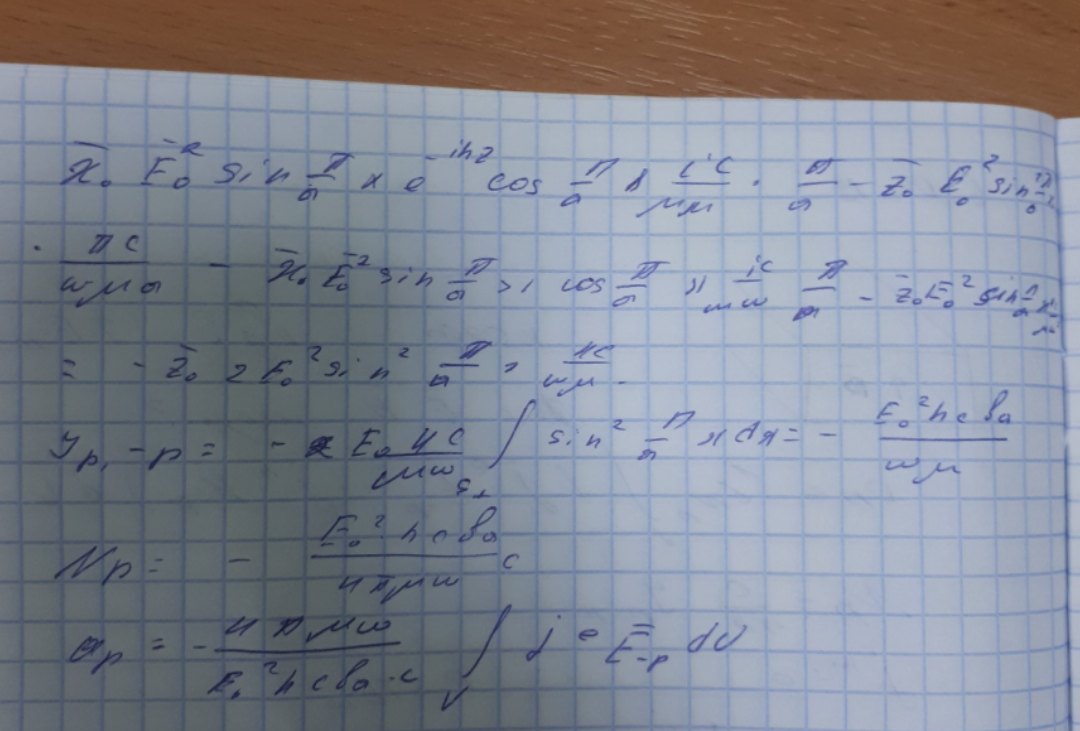 x̄₀ Ē₀² sin π/a x e^(-ihz) cos π/a x ic/μω · π/a − z̄₀ E₀² sin π/a
· πc/ωμa − x̄₀ Ē₀² sin π/a x cos π/a x ic/μω π/a − z̄₀ E₀² sin π/a x
= − z̄₀ 2 E₀² sin² π/a x hc/ωμ.
Jp,−p = − E₀ hc/μω ∫S⊥ sin² π/a x dx = − E₀² h c b a/ωμ
Np = − E₀² h c b a/4πμω c
ap = − 4πμω/E₀² h c b a · c ∫V j e Ē−p dV